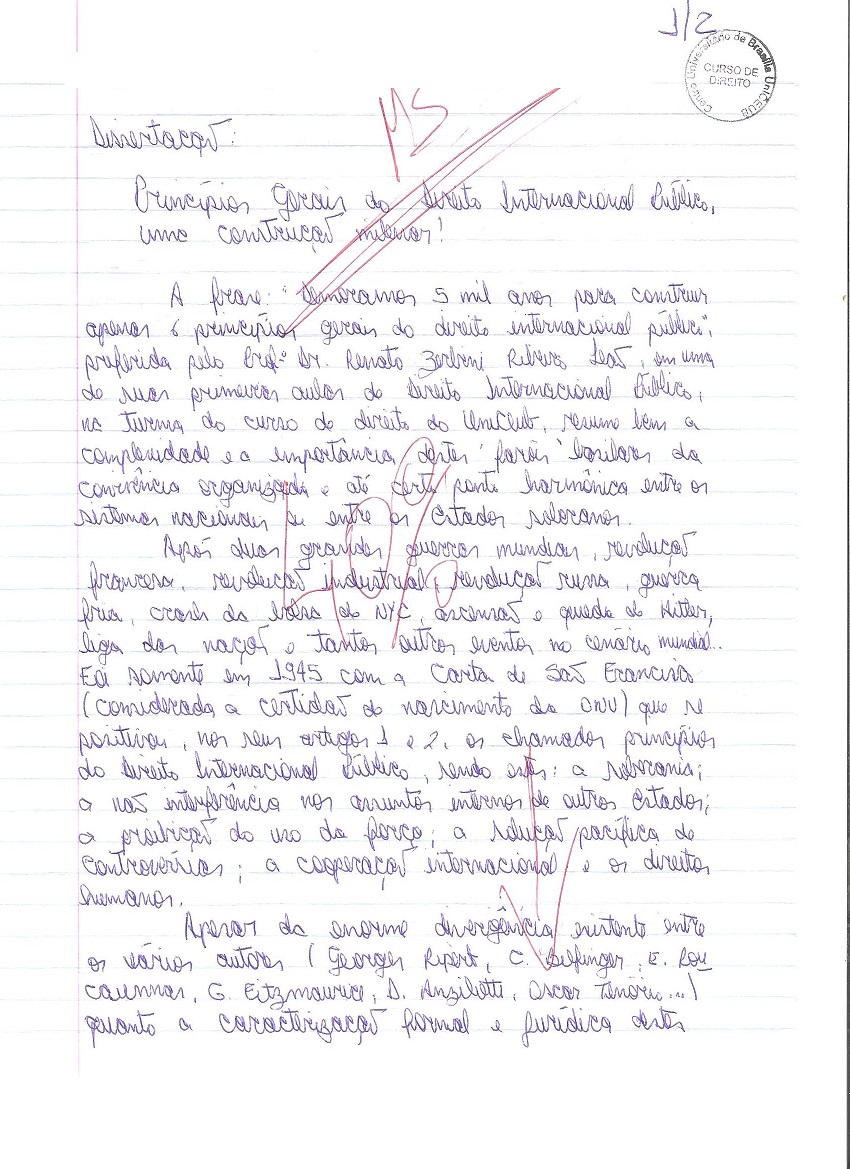 1/2
Centro Universitário de Brasília UniCEUB
CURSO DE
DIREITO
MS
Dissertação:
Princípios Gerais do Direito Internacional Público,
uma construção milenar!
A frase: "Demoramos 5 mil anos para construir
apenas 6 princípios gerais do direito internacional público",
preferida pelo Prof.º Dr. Renato Zerbini Ribeiro Leão, em uma
de suas primeiras aulas de Direito Internacional Público,
na turma do curso de direito do UniCeub, resume bem a
complexidade e a importância destes 'faróis' basilares da
convivência organizada e até certo ponto harmônica entre os
sistemas nacionais e entre os Estados soberanos.
Após duas grandes guerras mundiais, revolução
francesa, revolução industrial, revolução russa, guerra
fria, crash da bolsa de NYC, ascensão e queda de Hitler,
liga das nações e tantos outros eventos no cenário mundial...
Foi somente em 1945 com a Carta de São Francisco
(considerada a certidão de nascimento da ONU) que se
positivou, nos seus artigos 1 e 2, os chamados princípios
do Direito Internacional Público, sendo estes: a soberania;
a não interferência nos assuntos internos de outros Estados;
a proibição do uso da força; a solução pacífica de
controvérsias; a cooperação internacional e os direitos
humanos.
Apesar da enorme divergência existente entre
os vários autores (Georges Ripert, C. Bilfinger, E. Rou
caunnas, G. Fitzmaurice, D. Anzilotti, Oscar Tenório...)
quanto a caracterização formal e jurídica destes